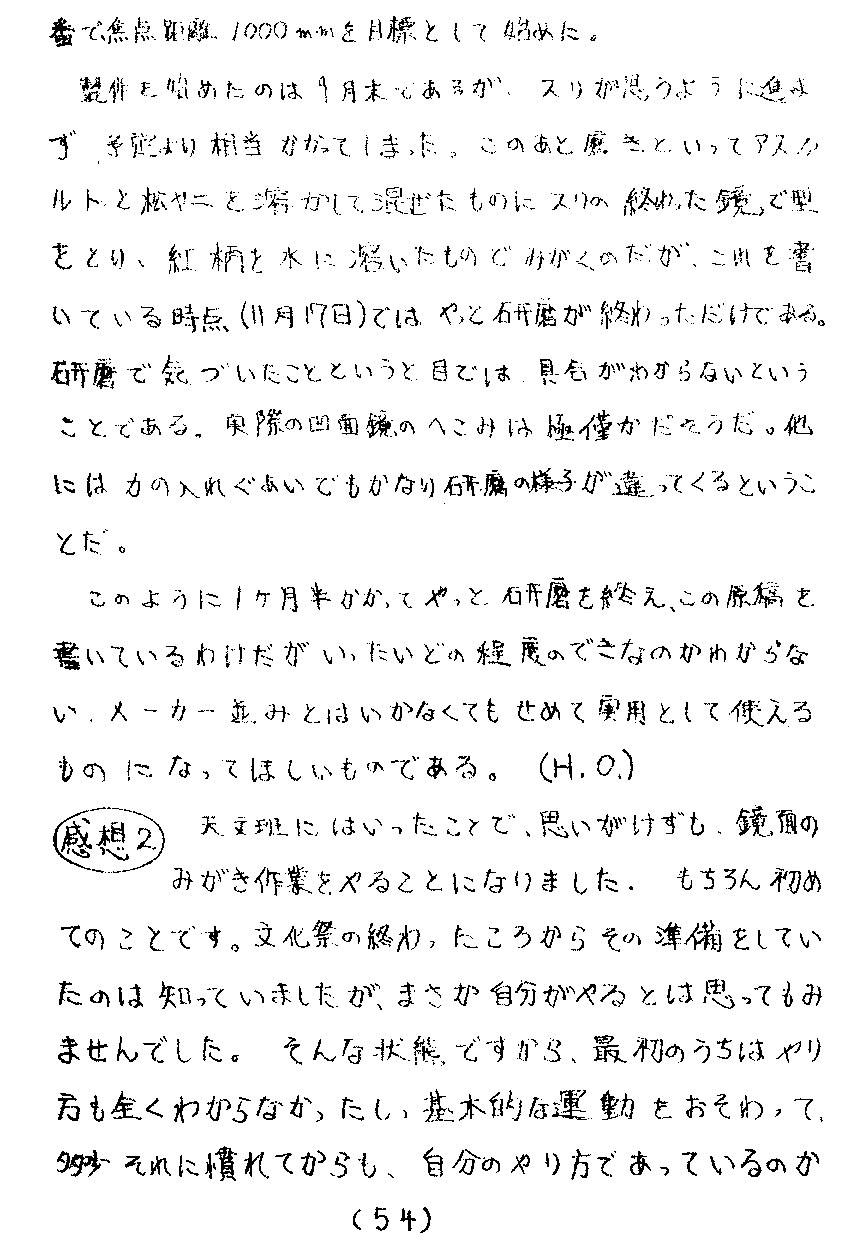 番で焦点距離 1000mmを目標として始めた。
製作を始めたのは9月末であるが、スリが思うように進ま
ず 予定より相当かかってしまった。このあと磨きといってアスファ
ルトと松ヤニを溶かして混ぜたものにスリの終わった鏡で型
をとり、紅柄を水に溶いたものでみがくのだが、これを書
いている時点(11月17日)ではやっと研磨が終わっただけである。
研磨で気づいたことというと目では、具合がわからないという
ことである。実際の凹面鏡のへこみは極僅かだそうだ。他
には力の入れぐあいでもかなり研磨の様子が違ってくるというこ
とだ。
このように1ケ月半かかってやっと研磨を終え、この原稿を
書いているわけだがいったいどの程度のできなのかわからな
い、メーカー並みとはいかなくてもせめて実用として使える
ものになってほしいものである。 (H.O.)
感想2 天文班にはいったことで、思いがけずも、鏡面の
みがき作業をやることになりました. もちろん初め
てのことです。文化祭の終わったころからその準備をしてい
たのは知っていましたが、まさか自分がやるとは思ってもみ
ませんでした。 そんな状態ですから、最初のうちはやり
方も全くわからなかったし、基本的な運動をおそわって、
多少それに慣れてからも、自分のやり方であっているのか
(54)